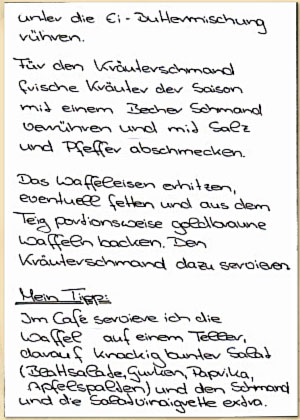 unter die Ei-Buttermischung
rühren.
Für den Kräuterschmand
frische Kräuter der Saison
mit einem Becher Schmand
verrühren und mit Salz
und Pfeffer abschmecken.
Das Waffeleisen erhitzen,
eventuell fetten und aus dem
Teig portionsweise goldbraune
Waffeln backen. Den
Kräuterschmand dazu servieren
Mein Tipp:
Im Café serviere ich die
Waffel auf einem Teller,
darauf knackig bunter Salat
(Blattsalate, Gurken, Paprika,
Apfelspalten) und den Schmand
und die Salatvinaigrette extra.